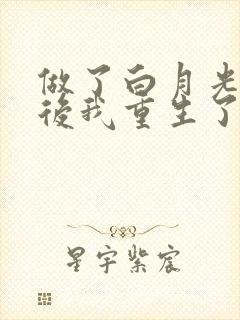 做了白月光
後我重生了
星宇紫宸